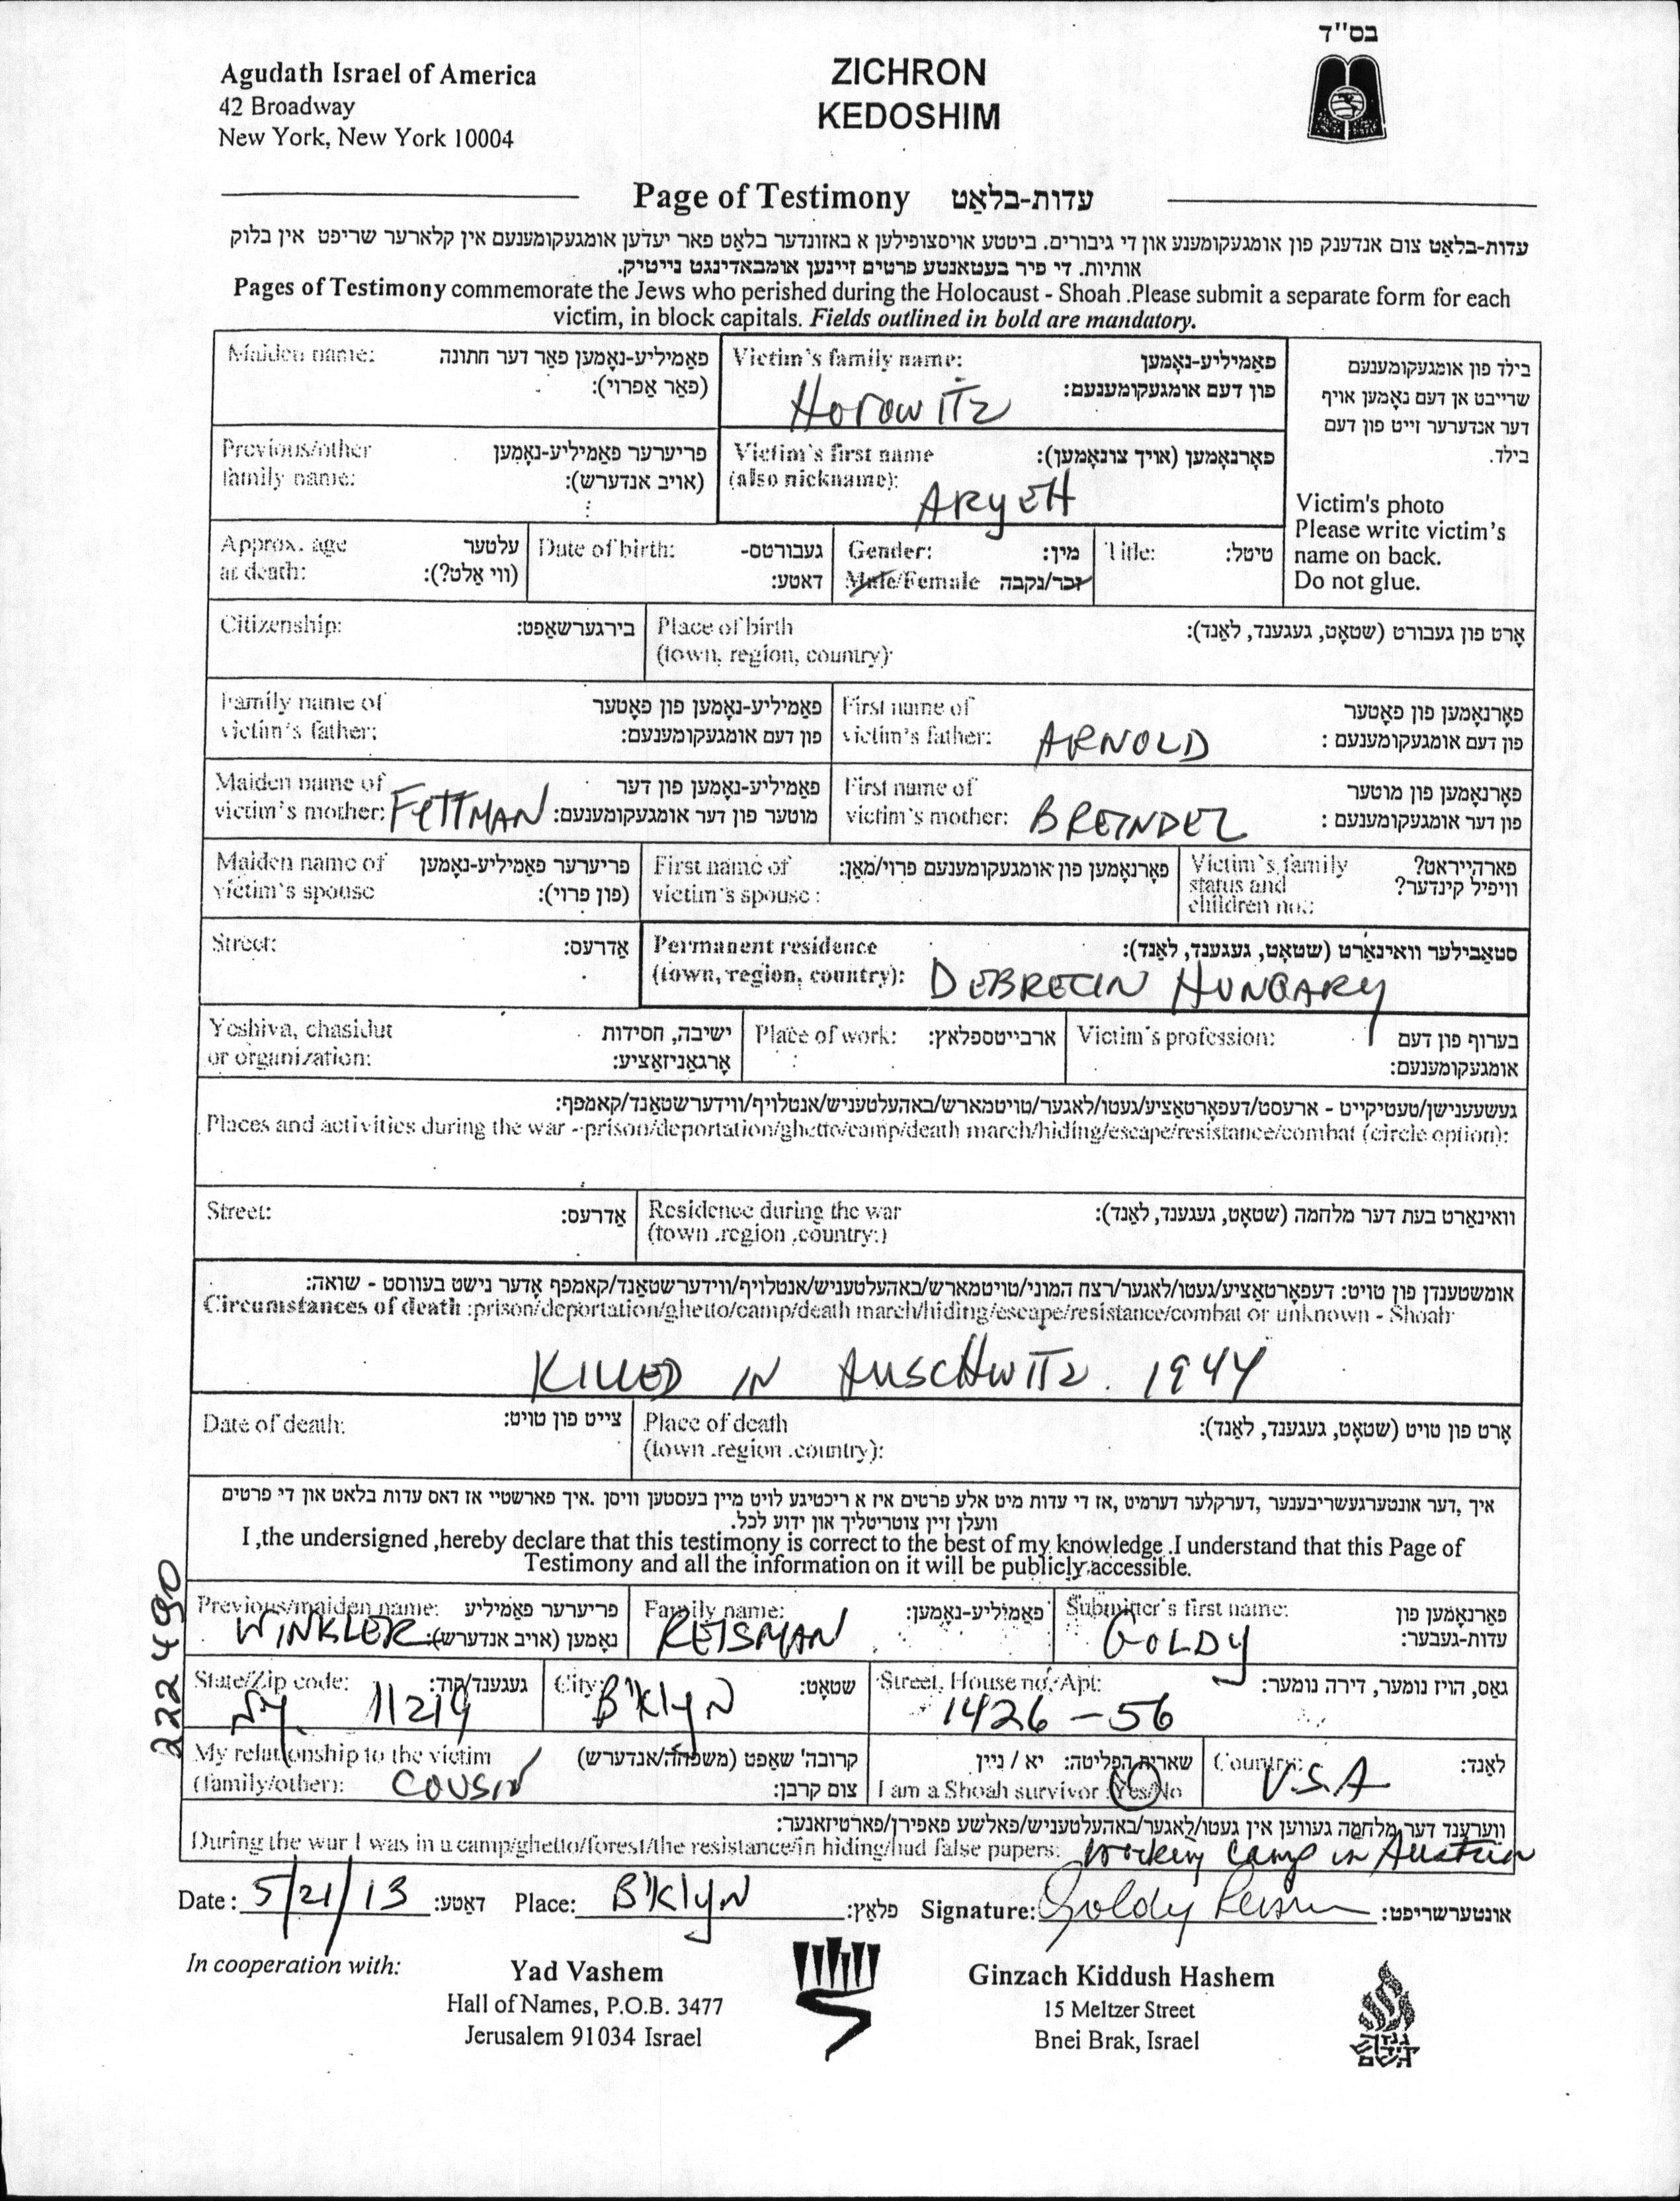 בס"ד
Agudath Israel of America
42 Broadway
New York, New York 10004
ZICHRON
KEDOSHIM
Page of Testimony עדות-בלאַט
עדות-בלאַט צום אנדענק פון אומגעקומענע און די גיבורים. ביטטע אויסצופילען א באזונדער בלאט פאר יעדען אומגעקומענעם אין קלארער שריפט אין בלוק
אותיות. די פיר בעטאנטע פרטים זיינען אומבאדינגט נייטיק.
Pages of Testimony commemorate the Jews who perished during the Holocaust - Shoah .Please submit a separate form for each
victim, in block capitals. Fields outlined in bold are mandatory.
Maiden name: פאַמיליע-נאָמען פאַר דער חתונה
(פאַר אַפרוי):
Victim's family name: פאַמיליע-נאָמען
פון דעם אומגעקומענעם:
Horowitz
בילד פון אומגעקומענעם
שרייבט אן דעם נאָמען אויף
דער אנדערער זייט פון דעם
בילד.
Victim's photo
Please write victim's
name on back.
Do not glue.
Previous/other פריערער פאַמיליע-נאָמען
family name: (אויב אנדערש):
Victim's first name פאָרנאָמען (אויך צונאָמען):
(also nickname):
ARYEH
Approx. age עלטער
at death: (ווי אַלט?):
Date of birth: געבורטס-
דאטע:
Gender: מין:
Male/Female זכר/נקבה
Title: טיטל:
Citizenship: בירגערשאַפט:
Place of birth אָרט פון געבורט (שטאָט, געגענד, לאַנד):
(town, region, country):
Family name of פאַמיליע-נאָמען פון פאָטער
victim's father: פון דעם אומגעקומענעם:
First name of פאָרנאָמען פון פאָטער
victim's father: ARNOLD פון דעם אומגעקומענעם :
Maiden name of פאַמיליע-נאָמען פון דער
victim's mother: FETTMAN מוטער פון דער אומגעקומענעם:
First name of פאָרנאָמען פון מוטער
victim's mother: BREINDEL פון דער אומגעקומענעם :
Maiden name of פריערער פאַמיליע-נאָמען
victim's spouse (פון פרוי):
First name of פאָרנאָמען פון אומגעקומענעם פרוי/מאַן:
victim's spouse :
Victim's family פארהייראט?
status and וויפיל קינדער?
children no.:
Street: אַדרעס:
Permanent residence סטאַבילער וואוינאָרט (שטאָט, געגענד, לאַנד):
(town, region, country): DEBRECIN HUNGARY
Yeshiva, chasidut ישיבה, חסידות
or organization: אָרגאַניזאַציע:
Place of work: ארבייטספלאץ:
Victim's profession: בערוף פון דעם
אומגעקומענעם:
געשעענישן/טעטיקייט - ארעסט/דעפאָרטאַציע/געטו/לאגער/טויטמארש/באהעלטעניש/אנטלויף/ווידערשטאַנד/קאמפף:
Places and activities during the war - prison/deportation/ghetto/camp/death march/hiding/escape/resistance/combat (circle option):
Street: אַדרעס:
Residence during the war וואוינאָרט בעת דער מלחמה (שטאָט, געגענד, לאַנד):
(town .region .country:)
אומשטענדן פון טויט: דעפאָרטאַציע/געטו/לאגער/רצח המוני/טויטמארש/באהעלטעניש/אנטלויף/ווידערשטאַנד/קאמפף אָדער נישט בעוווסט - שואה:
Circumstances of death :prison/deportation/ghetto/camp/death march/hiding/escape/resistance/combat or unknown - Shoah
KILLED IN AUSCHWITZ. 1944
Date of death: צייט פון טויט:
Place of death אָרט פון טויט (שטאָט, געגענד, לאַנד):
(town .region .country):
איך ,דער אונטערגעשריבענער ,דערקלער דערמיט ,אז די עדות מיט אלע פרטים איז א ריכטיגע לויט מיין בעסטען וויסן .איך פארשטיי אז דאס עדות בלאט און די פרטים
וועלן זיין צוטריטליך און ידוע לכל.
I ,the undersigned ,hereby declare that this testimony is correct to the best of my knowledge .I understand that this Page of
Testimony and all the information on it will be publicly accessible.
Previous/maiden name: פריערער פאַמיליע
WINKLER נאָמען (אויב אנדערש):
Family name: פאַמיליע-נאָמען:
REISMAN
Submitter's first name: פאָרנאָמען פון
GOLDY עדות-געבער:
State/Zip code: געגענד/קוד:
NY. 11219
City: שטאָט:
B'Klyn
Street, House no., Apt: גאַס, הויז נומער, דירה נומער:
1426 - 56
My relationship to the victim קרובה' שאַפט (משפּחה/אנדערש)
(family/other): COUSIN צום קרבן:
שארית הפליטה: יא / ניין
I am a Shoah survivor :Yes/No
Country: לאַנד:
U.S.A
ווערענד דער מלחמה געווען אין געטו/לאַגער/באהעלטעניש/פאלשע פאפירן/פארטיזאנער:
During the war I was in a camp/ghetto/forest/the resistance/in hiding/had false papers: working camp in Austria
Date : 5/21/13 דאַטע: Place: B'Klyn פלאַץ: Signature: Goldy Reisman אונטערשריפט:
222490
In cooperation with:
Yad Vashem
Hall of Names, P.O.B. 3477
Jerusalem 91034 Israel
Ginzach Kiddush Hashem
15 Meltzer Street
Bnei Brak, Israel
גנזך
קידוש
השם